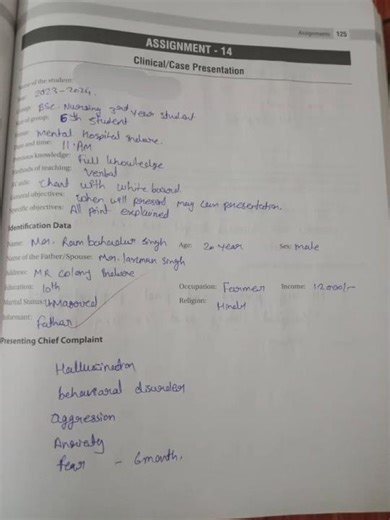 Assignments 125
ASSIGNMENT - 14
Clinical/Case Presentation
Name of the student:
Year: 2023-2024
Group: BSc. Nursing 3rd year student
group: 6th student
Mental Hospital Indore
and time: 11.AM
Previous knowledge: Full knowledge
Methods of teaching: Verbal
aids: chart with white board.
General objectives: When will present may cum presentation.
Specific objectives: All print explained
Identification Data
Name: Mr. Ram bahadur singh Age: 20 year Sex: male
Name of the Father/Spouse: Mr. laxman singh
Address: MR Colony Indore
Education: 10th Occupation: Farmer Income: 12000/-
Marital Status: UMarried Religion: Hindu
Informant: Father
Presenting Chief Complaint
Hallucination
behavioral disorder
aggression
Anxiety
fear - 6 month.